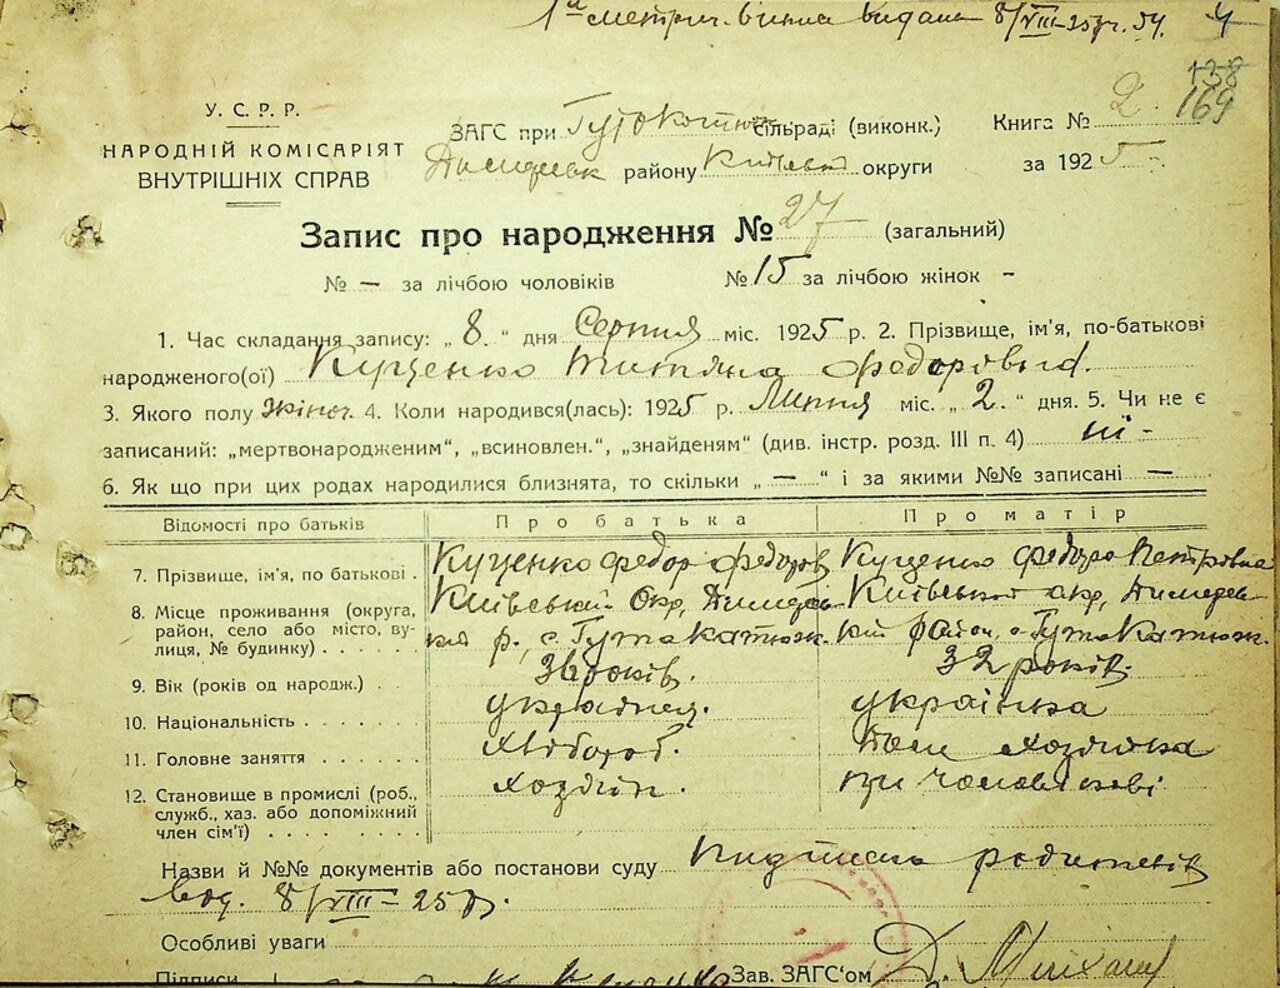 1ª метрич. випис видана 8/VIII-25 р. 54.
4
138
169
У. С. Р. Р.
НАРОДНІЙ КОМІСАРІЯТ
ВНУТРІШНІХ СПРАВ
ЗАГС при Гутокатюж сільраді (виконк.) Книга № 2
Димерськ району Київськ округи за 1925
Запис про народження № 27 (загальний)
№ — за лічбою чоловіків № 15 за лічбою жінок -
1. Час складання запису: „ 8 “ дня Серпня міс. 1925 р. 2. Прізвище, ім'я, по-батькові
народженого(ої) Куценко Титяна Федоровна.
3. Якого полу жіноч. 4. Коли народився(лась): 1925 р. Липня міс. „ 2 “ дня. 5. Чи не є
записаний: „мертвонародженим“, „всиновлен.“, „знайденям“ (див. інстр. розд. III п. 4) ні -
6. Як що при цих родах народилися близнята, то скільки „ — “ і за якими №№ записані —
Відомості про батьків Про батька Про матір
7. Прізвище, ім'я, по батькові . Куценко Федор Федоров Куценко Федора Петровна
8. Місце проживання (округа, район, село або місто, вулиця, № будинку) . . . . . Київський окр, Димерський р., с. Гута Катюж. Київської окр, Димерський район, с. Гута Катюж.
9. Вік (років од народж.) . . 36 років. 32 років.
10. Національність . . . . . . . українец. українка
11. Головне заняття . . . . . . хлібороб. Дом хозяйка
12. Становище в промислі (роб., служб., хаз. або допоміжний член сім'ї) . . . . . . . . хозяїн. при чоловікові
Назви й №№ документів або постанови суду підписка родителів
від. 8/VIII-25 р.
Особливі уваги
Підписи Зав. ЗАГС'ом